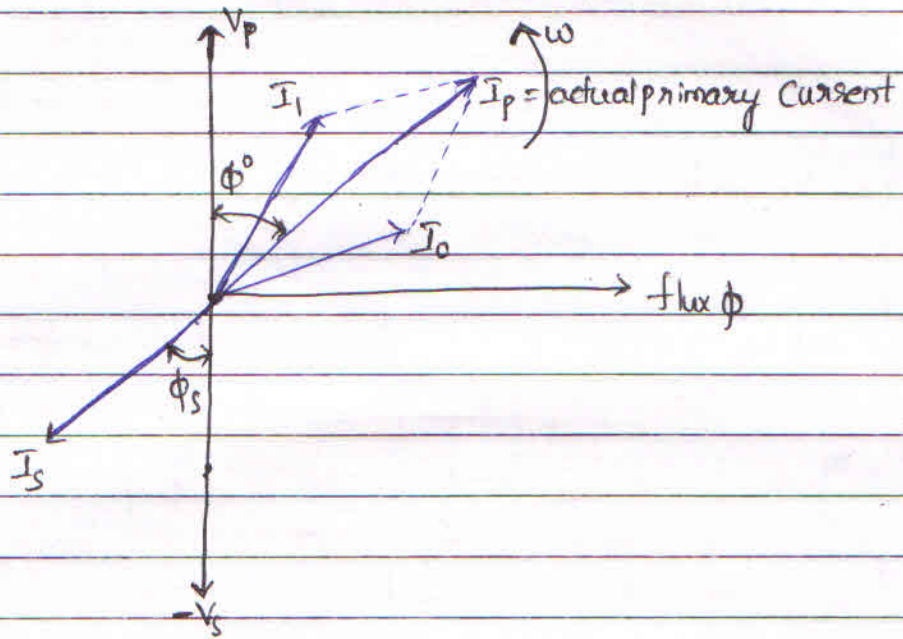 Vp
ω
I1
Ip = actual primary Current
φ°
I0
flux φ
φs
Is
-Vs